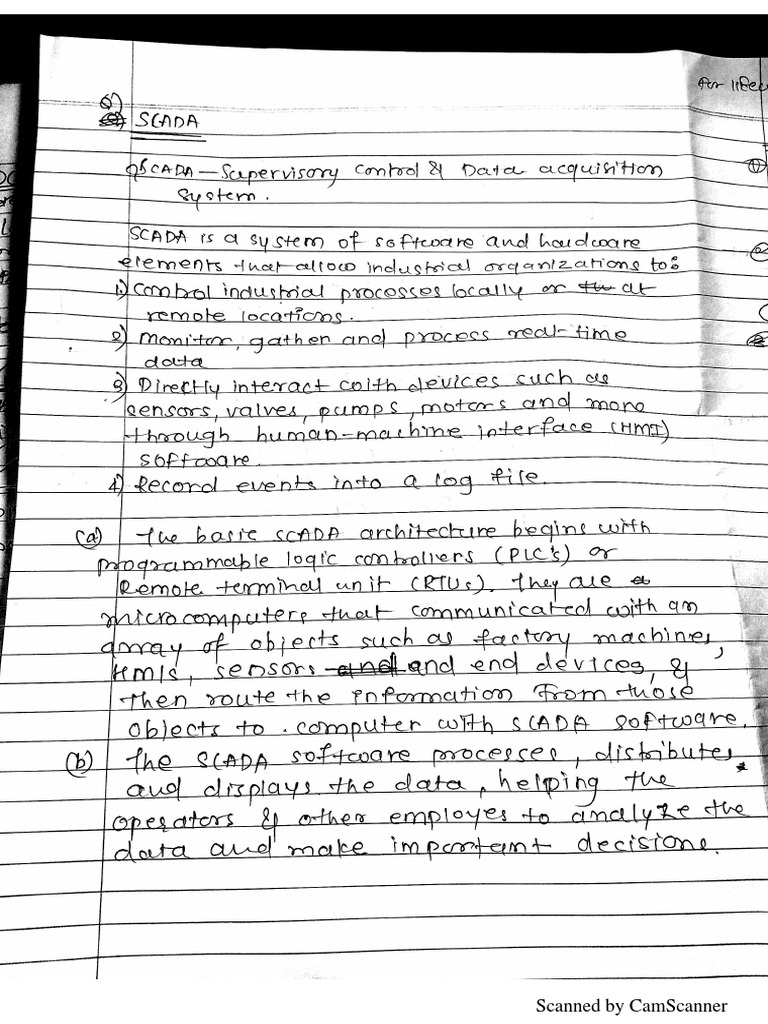 5)
SCADA
SCADA – Supervisory Control & Data acquisition
System.
SCADA is a system of software and hardware
elements that allow industrial organizations to:
1) Control industrial processes locally or at
remote locations.
2) Monitor, gather and process real-time
data
3) Directly interact with devices such as
sensors, valves, pumps, motors and more
through human-machine interface (HMI)
software.
4) Record events into a log file.
(a) The basic SCADA architecture begins with
programmable logic controllers (PLC's) or
Remote terminal unit (RTUs). They are
microcomputers that communicated with an
array of objects such as factory machines,
HMIs, sensors and end devices, &
then route the information from those
objects to computer with SCADA software.
(b) The SCADA software processes, distributes
and displays the data, helping the
operators & other employes to analyze the
data and make important decisions.
Scanned by CamScanner